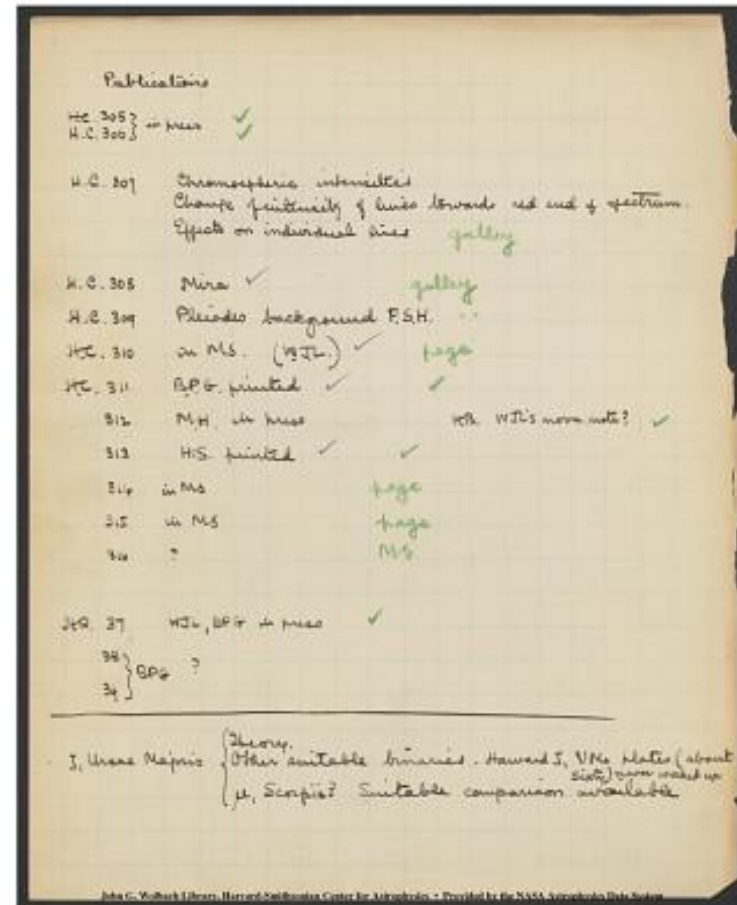 Publications
H.C. 305 } in press ✓
H.C. 306 } ✓
H.C. 307 Chromospheric intensities
Change of intensity of lines towards red end of spectrum.
Effects on individual lines galley
H.C. 308 Mira ✓ galley
H.C. 309 Pleiades background F.S.H. "
H.C. 310 in MS. (WJL.) ✓ page
H.C. 311 B.P.G. printed ✓ ✓
312 M.H. in press WJL's nova note? ✓
313 H.S. printed ✓ ✓
314 in MS page
315 in MS page
316 ? MS.
37 WJL, BPG in press ✓
38 } BPG ?
39 }
Ursae Majoris { Theory.
Other suitable binaries. Harvard plates (about
sixty)
μ, Scorpii? Suitable comparison available
John G. Wolbach Library, Harvard-Smithsonian Center for Astrophysics • Provided by the NASA Astrophysics Data System